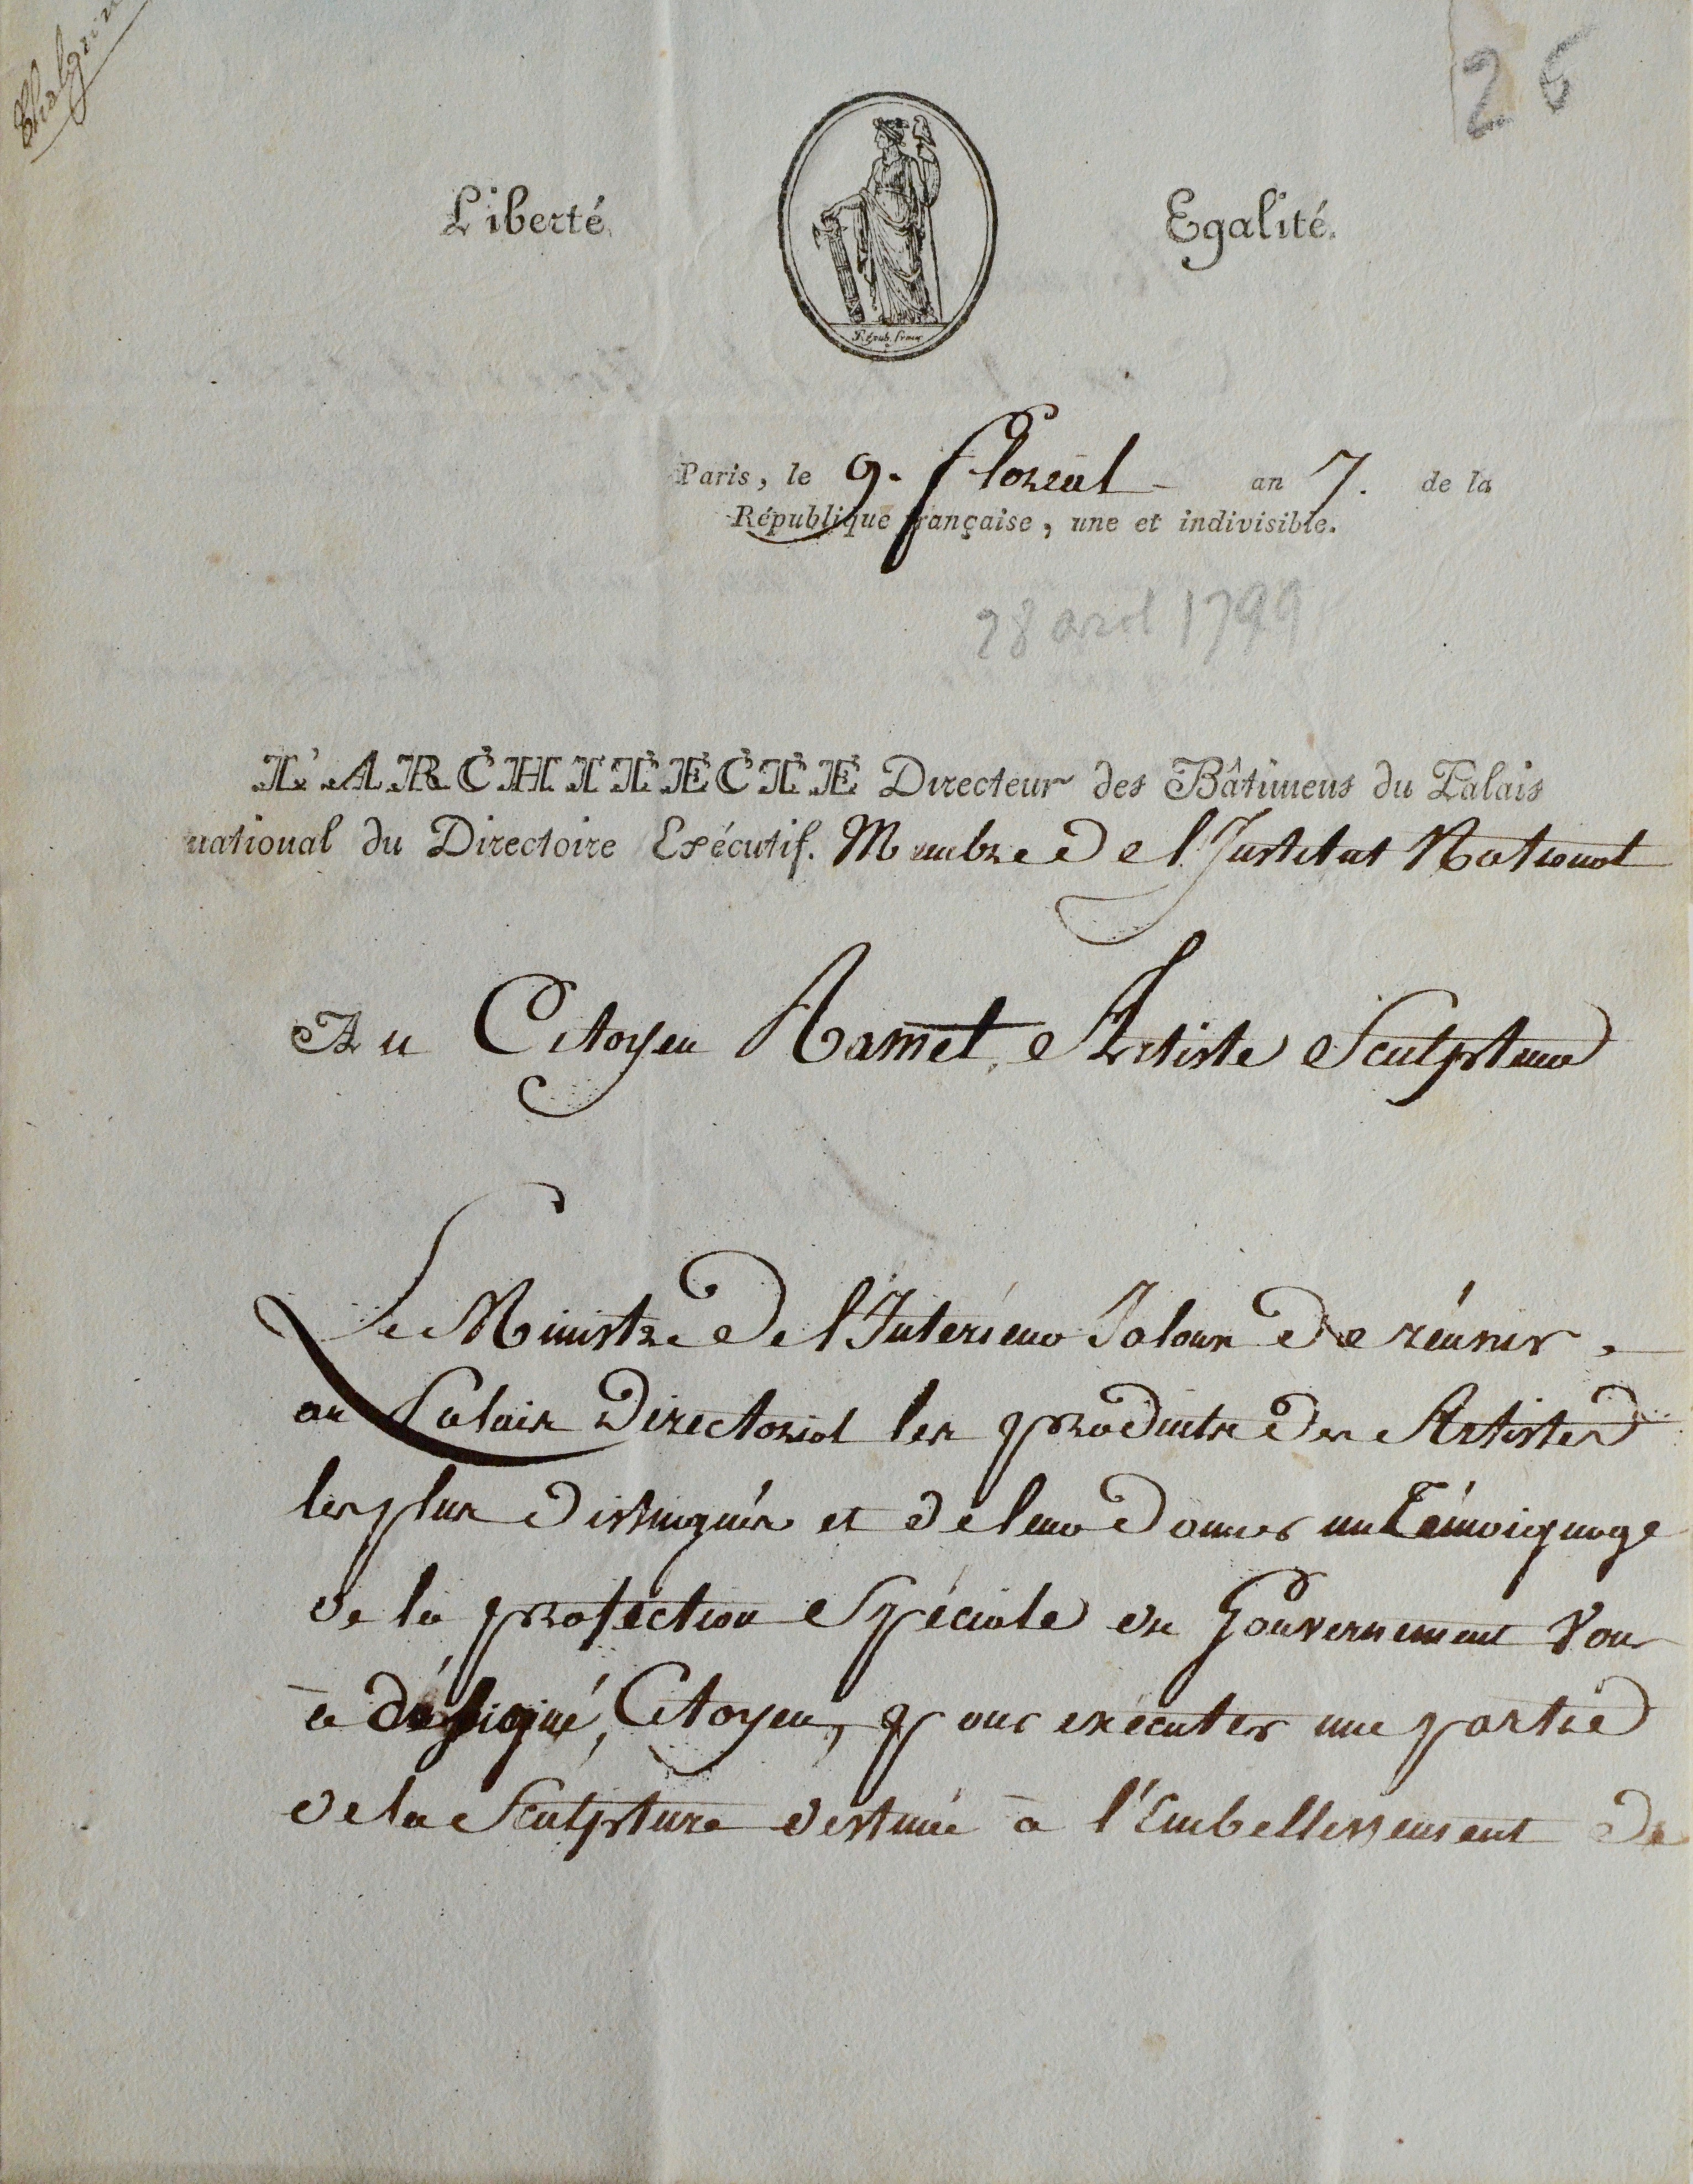 Chalgrin
26
Liberté. Egalité.
Répub. franç.
Paris, le 9. floreal an 7. de la
République française, une et indivisible.
28 avril 1799
L'ARCHITECTE Directeur des Bâtimens du Palais
national du Directoire Exécutif. Membre de l'Institut National
Au Citoyen Ramet Artiste Sculpteur
Le Ministre de l'Intérieur Jaloux de réunir
au Palais Directorial les produits des Artistes
les plus distingués et de leur donner un Témoignage
de la protection Spéciale du Gouvernement vous
a désigné, Citoyen, pour exécuter une partie
de la Sculpture destinée à l'Embellissement de